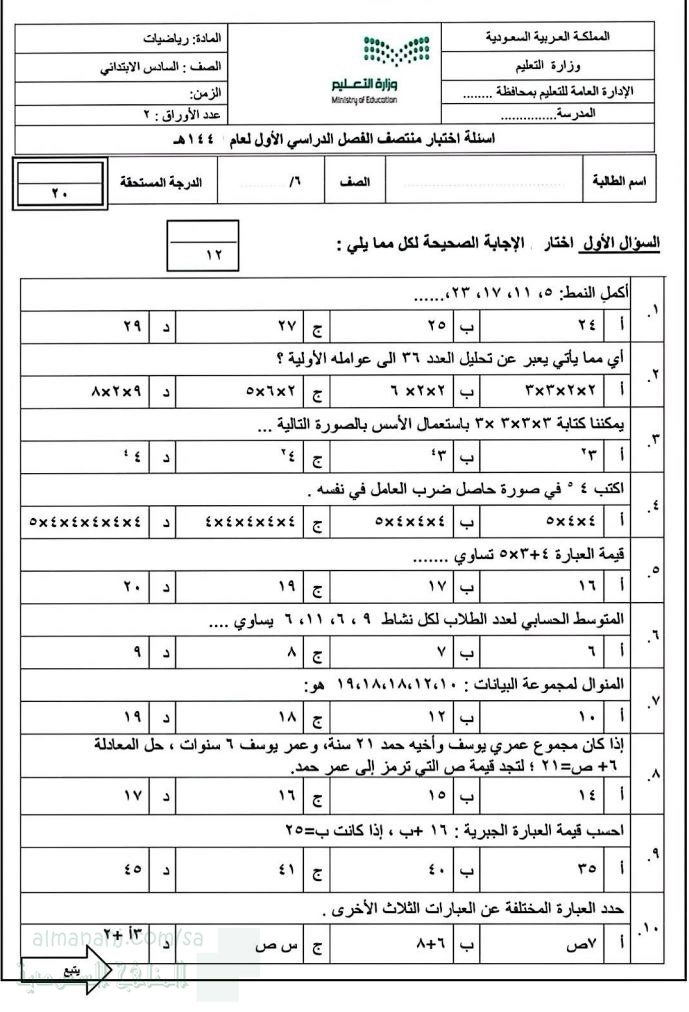 المملكة العربية السعودية
وزارة التعليم
الإدارة العامة للتعليم بمحافظة ........
المدرسة..............
وزارة التعليم
Ministry of Education
المادة: رياضيات
الصف : السادس الابتدائي
الزمن:
عدد الأوراق : ٢
اسئلة اختبار منتصف الفصل الدراسي الأول لعام ١٤٤هـ
اسم الطالبة
الصف
٦/
الدرجة المستحقة
٢٠
السؤال الأول اختار الإجابة الصحيحة لكل مما يلي :
١٢
١. أكمل النمط: ٥، ١١، ١٧، ٢٣،......
أ ٢٤ ب ٢٥ ج ٢٧ د ٢٩
٢. أي مما يأتي يعبر عن تحليل العدد ٣٦ الى عوامله الأولية ؟
أ ٢×٢×٣×٣ ب ٢×٢× ٦ ج ٢×٦×٥ د ٩×٢×٨
٣. يمكننا كتابة ٣×٣×٣ ×٣ باستعمال الأسس بالصورة التالية ...
أ ٣٢ ب ٣٤ ج ٤٢ د ٤٤
٤. اكتب ٤ ٥ في صورة حاصل ضرب العامل في نفسه .
أ ٤×٤×٥ ب ٤×٤×٤×٥ ج ٤×٤×٤×٤×٤ د ٤×٤×٤×٤×٤×٥
٥. قيمة العبارة ٤+٣×٥ تساوي .......
أ ١٦ ب ١٧ ج ١٩ د ٢٠
٦. المتوسط الحسابي لعدد الطلاب لكل نشاط ٩ ، ٦، ١١، ٦ يساوي ....
أ ٦ ب ٧ ج ٨ د ٩
٧. المنوال لمجموعة البيانات : ١٩،١٨،١٨،١٢،١٠ هو:
أ ١٠ ب ١٢ ج ١٨ د ١٩
٨. إذا كان مجموع عمري يوسف وأخيه حمد ٢١ سنة، وعمر يوسف ٦ سنوات ، حل المعادلة
٦+ ص=٢١ ؛ لتجد قيمة ص التي ترمز إلى عمر حمد.
أ ١٤ ب ١٥ ج ١٦ د ١٧
٩. احسب قيمة العبارة الجبرية : ١٦ +ب ، إذا كانت ب=٢٥
أ ٣٥ ب ٤٠ ج ٤١ د ٤٥
١٠. حدد العبارة المختلفة عن العبارات الثلاث الأخرى .
أ ٧ص ب ٦+٨ ج س ص د ٣أ +٢
almanahj.com/sa
المناهج السعودية
يتبع